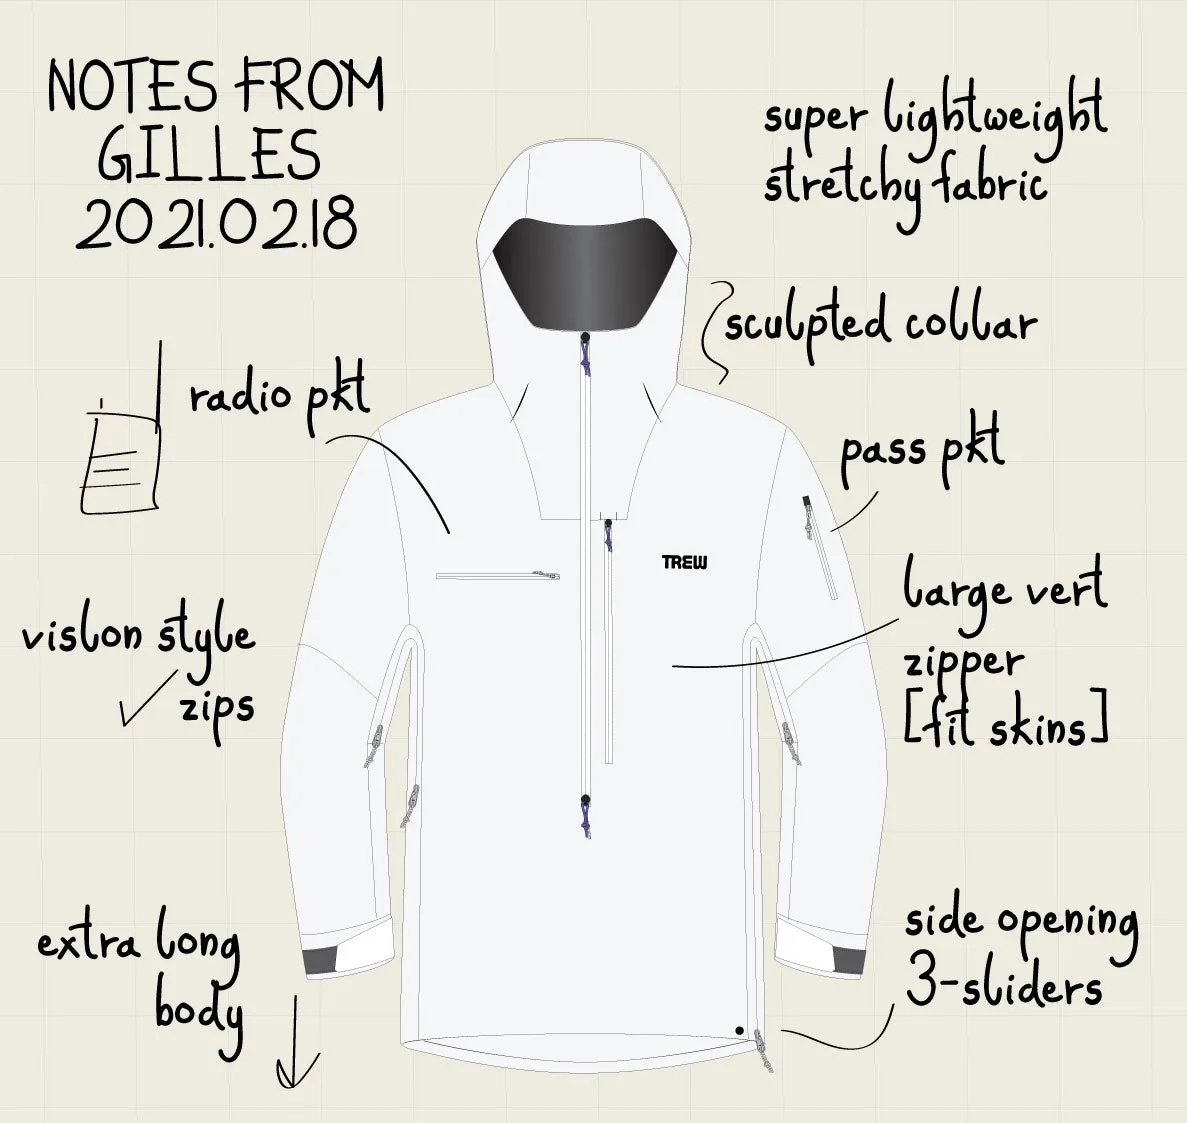 NOTES FROM
GILLES
2021.02.18
super lightweight
stretchy fabric
sculpted collar
radio pkt
pass pkt
TREW
large vert
zipper
[fit skins]
vislon style
zips
extra long
body
side opening
3-sliders